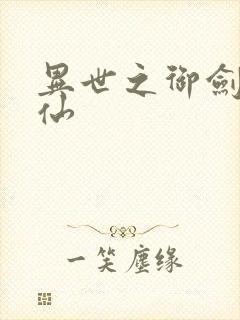 異世之御劍
仙
一笑塵缘